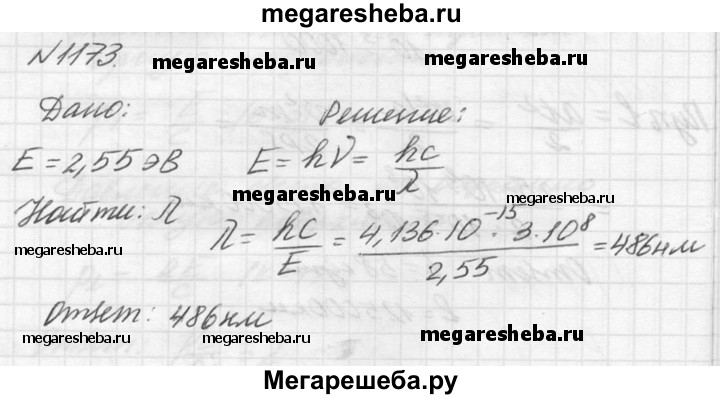 megaresheba.ru
N1173. megaresheba.ru megaresheba.ru
Дано: Решение:
E = 2,55 эВ E = hν = hc/λ
megaresheba.ru megaresheba.ru
Найти: λ
λ = hc/E = 4,136·10⁻¹⁵·3·10⁸/2,55 = 486 нм
megaresheba.ru megaresheba.ru
Ответ: 486 нм
megaresheba.ru megaresheba.ru megaresheba.ru
Мегарешеба.ру